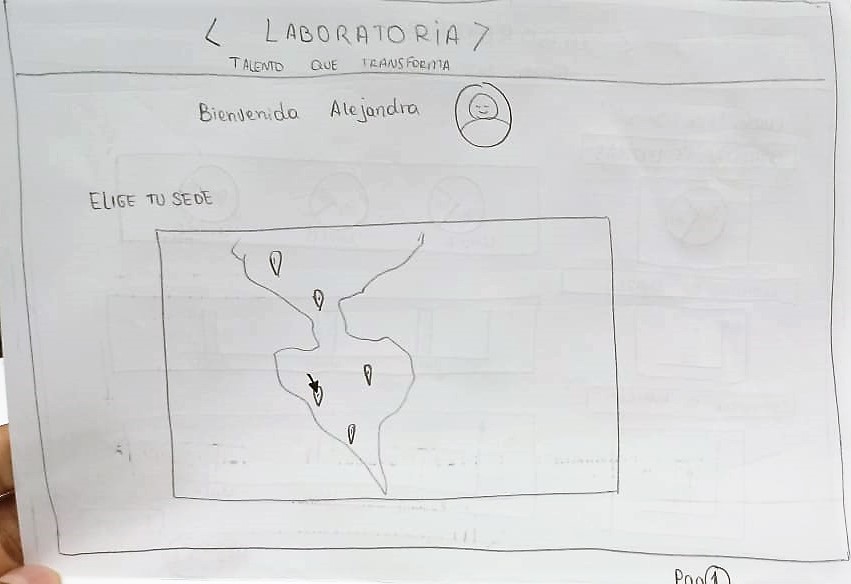 < LABORATORiA >
TALENTO QUE TRANSFORMA
Bienvenida Alejandra
ELIGE TU SEDE